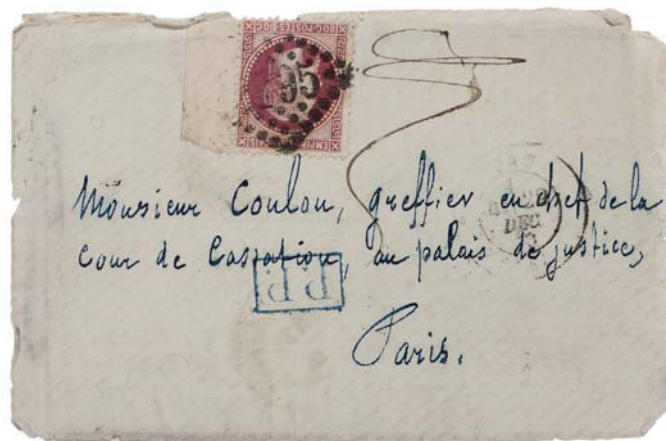 80C·POSTES·80C
495
EMPIRE FRANÇAIS
Monsieur Coulon, greffier en chef de la
cour de Cassation, au palais de justice,
Paris.
P.P.
DEC